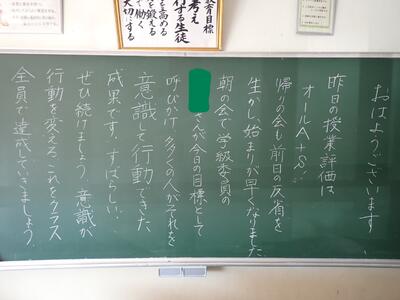 おはようございます
昨日の授業評価は
オールA+S!
帰りの会も前日の反省を
生かし、始まりが早くなりました
朝の会で学級委員の
さんが今日の目標として
呼びかけ 多くの人がそれを
意識して行動できた
成果です。すばらしい…
ぜひ続けましょう。意識が
行動を変える。これをクラス
全員で達成していきましょう。
教育目標
考え
行する生徒
を高める
を鍛える
て働く
大切にする